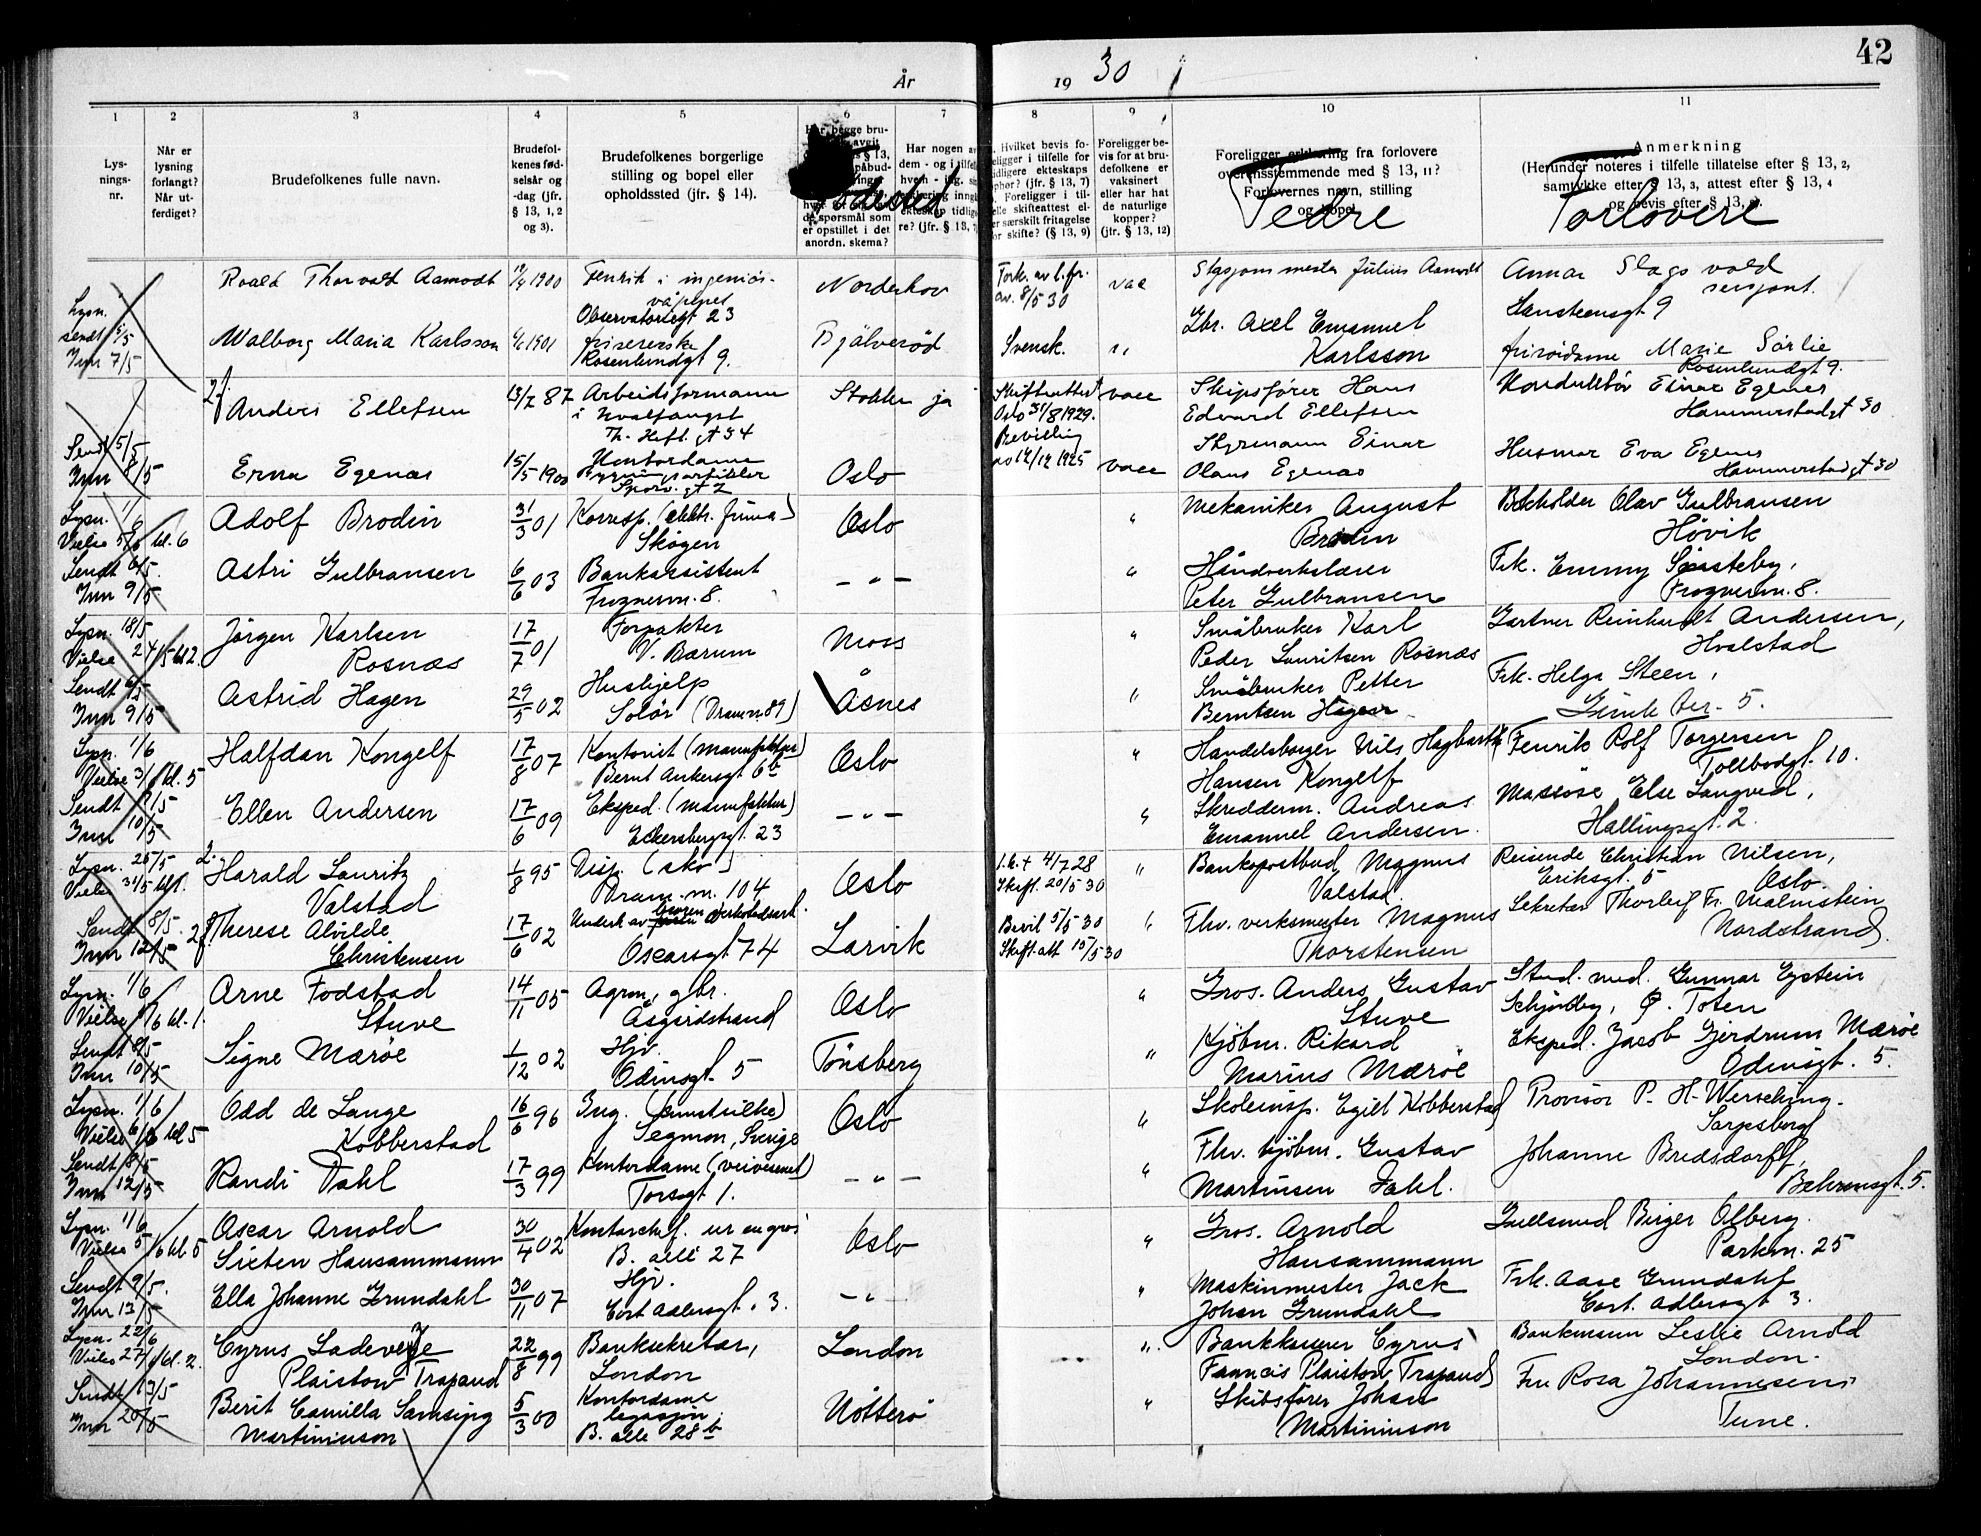 42
År 1930
1 2 3 4 5 6 7 8 9 10 11
Lys-
nings-
nr.
Når er
lysning
forlangt?
Når ut-
ferdiget?
Brudefolkenes fulle navn.
Brudefol-
kenes fød-
selsår og
-dag (jfr.
§ 13, 1, 2
og 3).
Brudefolkenes borgerlige
stilling og bopel eller
opholdssted (jfr. § 14).
Har begge bru-
de spørsmål som
er opstillet i det
anordn. skema?
Fødested
Har nogen av
dem - og i tilfelle
re? (jfr. § 13,
Hvilket bevis fo-
religger i tilfelle for
tidligere ekteskaps
ophør? (jfr. § 13, 7)
Foreligger i til-
felle skifteattest el-
ler særskilt fritagelse
for skifte? (§ 13, 9)
Foreligger be-
vis for at bru-
defolkene er
vaksinert
eller har hat
de naturlige
kopper?
(jfr. § 13, 12)
Foreligger erklæring fra forlovere
overensstemmende med § 13, 11?
Forlovernes navn, stilling
og bopel.
Fedre
Anmerkning
(Herunder noteres i tilfelle tillatelse efter § 13, 2,
samtykke efter § 13, 3, attest efter § 13, 4
og bevis efter § 13,
Forlovere
Lysn.
sendt 5/5
Inn 7/5
Roald Thorvald Aamodt 1900 Fenrik i ingeniör-
våpnet
Observatoriegt 23
Norderhov
av 8/5 30
vac
Julius Aamodt
Gunnar Slagsvold
sersjant.
Hansteensgt 9
Walborg Maria Karlsson 1901 frisererske
Rosenlundgt 9.
Bjälveröd Svensk. "
Gbr. Axel Emanuel
Karlsson
frisördame Marie Sörlie
Rosenlundgt 9.
Sendt 5/5
Inn 8/5
Anders Ellefsen 13/7 87 Arbeidsformann
i hvalfangst
Th. Heft. gt 34
Stokke ja
Skifteattest
Oslo 31/8 1929.
vacc
Skipsfører Hans
Edvard Ellefsen
Konduktör Einar Egenes
Hammerstadgt 30
Erna Egenæs 15/5 1900 Kontordame
Sporv.gt 2
Oslo
Bevilling
12/12 1925
vacc
Styrmann Einar
Olaus Egenæs
Husmor Eva Egenes
Hammerstadgt 30
Lysn. 1/6
Vielse 5/6 kl. 6
Sendt 6/5.
Inn 9/5
Adolf Brodin 31/3 01 Korresp. (elektr. firma)
Skøyen
Oslo "
Mekaniker August
Brodin
Bokholder Olav Gulbransen
Hövik
Astri Gulbransen 6/6 03 Bankassistent
Frognervn. 8.
— " — "
Håndverkslærer
Peter Gulbransen
Frk. Emmy Sönsteby,
Frognervn. 8.
Lysn. 18/5
Vielse 24/5 kl 2.
Sendt 6/5
Inn 9/5
Jörgen Karlsen
Rosnæs
17/7 01 Forpakter
V. Bærum
Moss "
Småbruker Karl
Peder Lauritsen Rosnæs
Gartner Reinhardt Andersen,
Hvalstad
Astrid Hagen 29/5 02 Hushjelp
Solör (Dramvn 89)
Åsnes "
Småbruker Petter
Berntsen Hagen
Frk. Helga Steen,
5.
Lysn. 1/6
Vielse 3/6 kl. 5
Sendt 8/5
Inn 10/5
Halfdan Kongelf 17/8 07 Kontorist (manufaktur)
Bernt Ankersgt 6b
Oslo "
Handelsborger Nils Hagbarth
Hansen Kongelf
Fenrik Rolf Torgersen
Tollbodgt. 10.
Ellen Andersen 17/6 09 Eksped. (manufaktur)
Eckersbergsgt. 23
— " — "
Skredderm. Andreas
Emanuel Andersen.
Massöse Else Langved,
Hallingsgt. 2.
Lysn. 25/5
Vielse 31/5 kl 1.
Sendt 8/5.
Inn 12/5
2. Harald Lauritz
Valstad
1/8 95 Disp. (sko)
Dram.vn. 104
Oslo
4/7 28
Skift. 20/5 30
"
Bankopostbud Magnus
Valstad
Reisende Christian Nilsen,
Eriksgt. 5 Oslo.
2 Therese Alvilde
Christensen
17/6 02
Oscarsgt 74
Larvik
Bevil 5/5 30
Skift.att 15/5 30
"
Fhv. verksmester Magnus
Thorstensen
Sekretær Thorleif Fr. Malmstein
Nordstrand.
Lysn. 1/6
Vielse 7/6 kl. 1.
Sendt 8/5
Inn 10/5
Arne Fodstad
Stuve
14/11 05 Agron., gbr.
Åsgårdstrand
Oslo "
Gros. Anders Gustav
Stuve
Stud. med. Gunnar Eystein
Schjördby, Ø. Toten
Signe Mæröe 1/12 02 Hjv.
Odinsgt. 5
Tönsberg "
Kjöbm. Rikard
Marius Mæröe
Eksped. Jacob Gjerdrum Mæröe
Odinsgt. 5.
Lysn. 1/6
Vielse 6/6 kl 5
Sendt 8/5
Inn 12/5
Odd de Lange
Kobberstad
16/6 96 Ing. (kunstsilke)
Segmon, Sverige
Oslo "
Skoleinsp. Egill Kobberstad
Provisor P. H. Wersching.
Sarpsborg
Randi Dahl 17/3 99 Kontordame (veivesenet)
Torsgt 1.
— " — "
Fhv. kjöbm. Gustav
Martinsen Dahl.
Johanne Bredsdorff,
Behrensgt. 5.
Lysn. 1/6
Vielse 5/6 kl. 5
Sendt 9/5.
Inn 13/5
Oscar Arnold
Sixten Hansammann
30/4 02 Kontorchef. ur en gros
B. allé 27
Oslo "
Gros. Arnold
Hansammann
Gullsmed Birger Olberg.
Parkvn. 25
Ella Johanne Grundahl 30/11 07 Hjv.
Cort Adlersgt. 3.
— " — "
Maskinmester Jack
Johan Grundahl
Frk. Aase Grundahl
Cort. Adlersgt 3.
Lysn. 22/6
Vielse 27/6 kl. 2.
Sendt 13/5
Inn 20/5
Cyrus Ladeveze
Plaistow Trapaud
22/8 99 Banksekretær,
London
London "
Bankkasserer Cyrus
Francis Plaistow Trapaud
Bankmann Leslie Arnold
London.
Berit Camilla Samsing
Martiniuson
5/3 00 Kontordame
legasjon
B. allé 28b
Nötterö "
Skibsfører Johan
Martiniuson
Fru Rosa Johannesen
Tune.